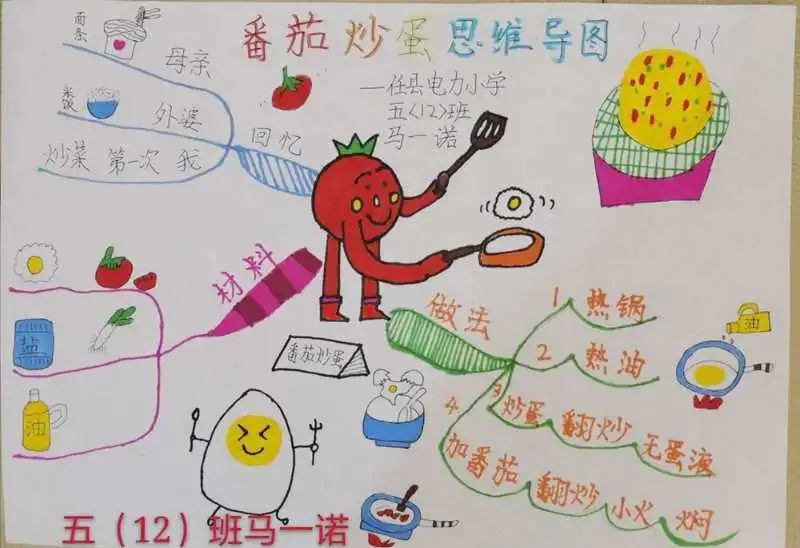 番茄炒蛋思维导图
—任县电力小学
五<12>班
马一诺
面条
母亲
米饭
外婆
炒菜 第一次 我
回忆
材料
盐
油
番茄炒蛋
做法
1 热锅
2 热油
3 炒蛋 翻炒 无蛋液
4 加番茄 翻炒 小火 焖
油
五（12）班马一诺